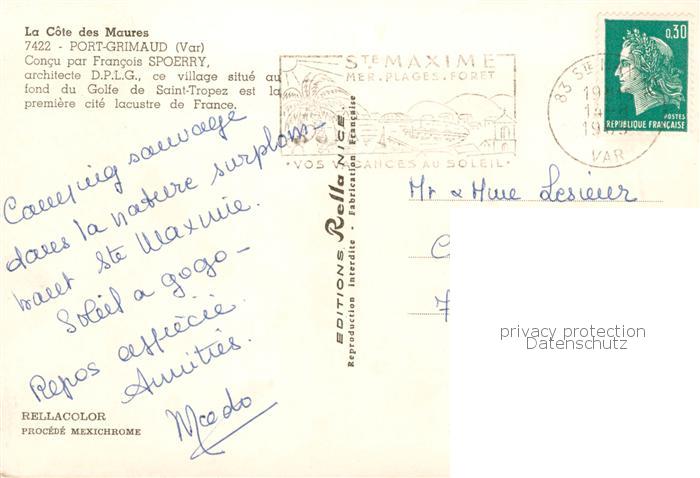 La Côte des Maures
7422 - PORT-GRIMAUD (Var)
Conçu par François SPOERRY,
architecte D.P.L.G., ce village situé au
fond du Golfe de Saint-Tropez est la
première cité lacustre de France.
Camping sauvage
dans la nature surplom-
bant Ste Maxime.
Soleil a gogo -
Repos apprécié.
Amitiés.
Mado
RELLACOLOR
PROCÉDÉ MEXICHROME
EDITIONS Rella NICE
Reproduction Interdite - Fabrication Française
STE MAXIME
MER. PLAGES. FORET
· VOS VACANCES AU SOLEIL ·
83 STE
VAR
0,30
POSTES
REPUBLIQUE FRANÇAISE
Mr & Mme Lesieur
privacy protection
Datenschutz